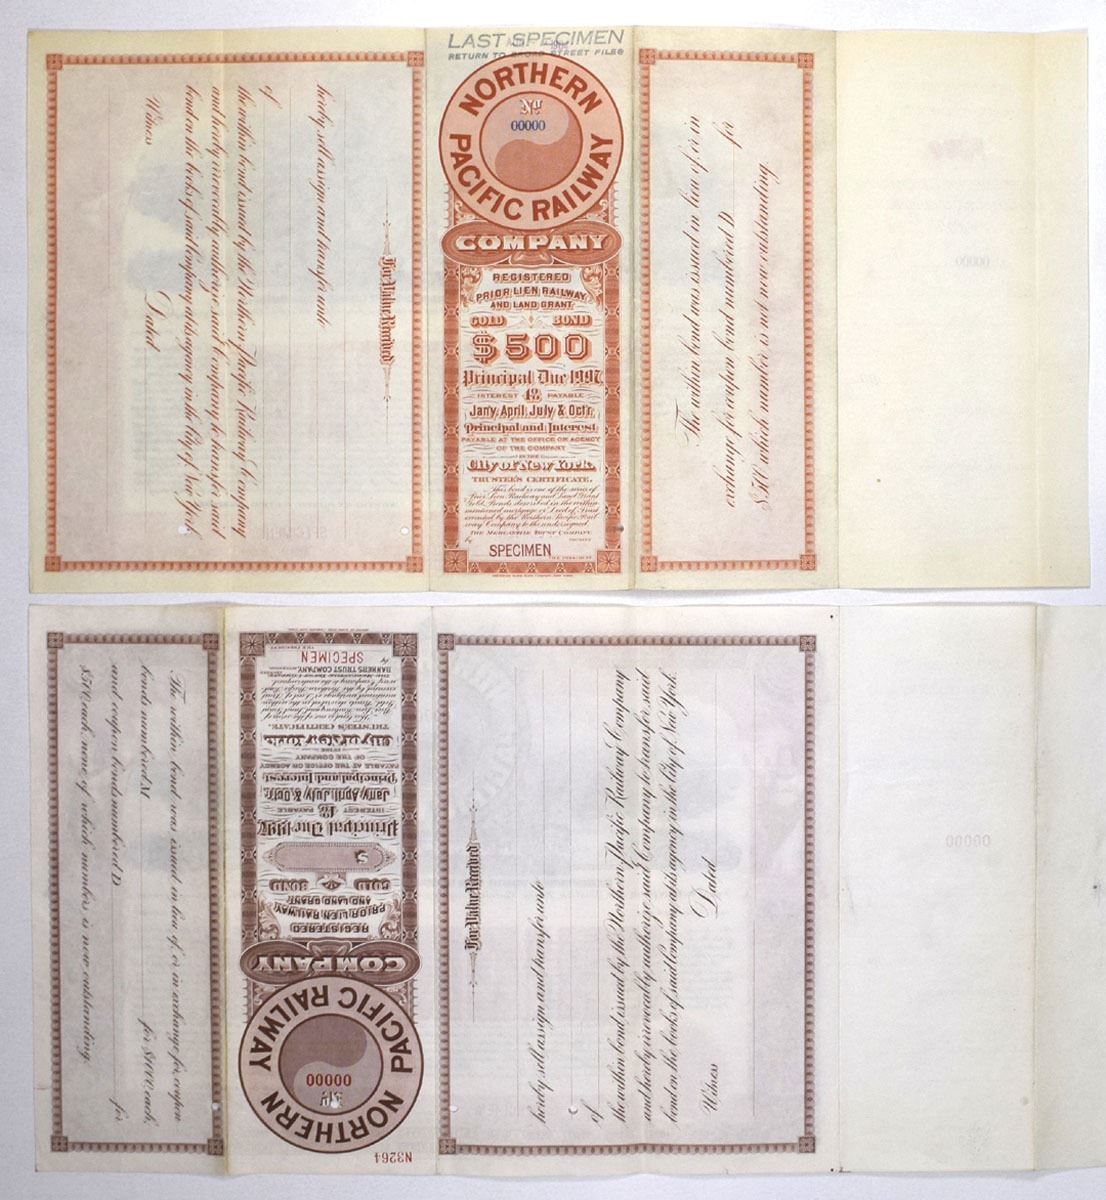 LAST SPECIMEN
RETURN TO BROAD STREET FILES
NORTHERN PACIFIC RAILWAY
No
00000
COMPANY
REGISTERED
PRIOR LIEN RAILWAY
AND LAND GRANT
GOLD BOND
$500
Principal Due 1997
INTEREST 4% PAYABLE
Jany, April, July & Octr.
Principal and Interest
PAYABLE AT THE OFFICE OR AGENCY
OF THE COMPANY
IN THE
City of New York.
TRUSTEE'S CERTIFICATE.
This bond is one of the series of
Prior Lien Railway and Land Grant
Gold Bonds described in the within
mentioned mortgage or Deed of Trust
executed by the Northern Pacific Rail
way Company to the undersigned
THE MERCANTILE TRUST COMPANY
by
SPECIMEN
For Value Received
hereby sell assign and transfer unto
of
the within bond issued by the Northern Pacific Railway Company
and hereby irrevocably authorize said Company to transfer said
bond on the books of said Company at its agency in the City of New York.
Dated
Witness
The within bond was issued in lieu of or in
exchange for coupon bond numbered D for
$500 which number is not now outstanding.
00000
SPECIMEN
The within bond was issued in lieu of, or in exchange for, coupon
bonds numbered M for $1000 each,
and coupon bonds numbered D for
$500 each, none of which numbers is now outstanding.
N3264
NORTHERN PACIFIC RAILWAY
No
00000
COMPANY
REGISTERED
PRIOR LIEN RAILWAY
AND LAND GRANT
GOLD BOND
$
Principal Due 1997
INTEREST 4% PAYABLE
Jany, April, July & Octr.
Principal and Interest
PAYABLE AT THE OFFICE OR AGENCY
OF THE COMPANY
IN THE
City of New York.
TRUSTEE'S CERTIFICATE.
This bond is one of the series of
Prior Lien Railway and Land Grant
Gold Bonds described in the within
mentioned mortgage or Deed of Trust
executed by the Northern Pacific Rail
way Company to the undersigned
BANKERS TRUST COMPANY
by
SPECIMEN
For Value Received
hereby sell assign and transfer unto
of
the within bond issued by the Northern Pacific Railway Company
and hereby irrevocably authorize said Company to transfer said
bond on the books of said Company at its agency in the City of New York.
Dated
Witness
00000